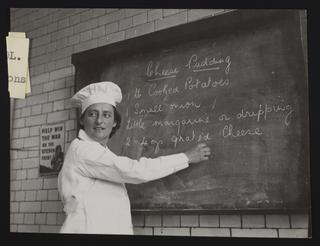 L.
ons
HELP WIN THE
WAR
ON THE
KITCHEN
FRONT
Cheese Pudding
1 lb Cooked Potatoes
1 Small onion /
Little margarine or dripping
2-4 ozs grated Cheese